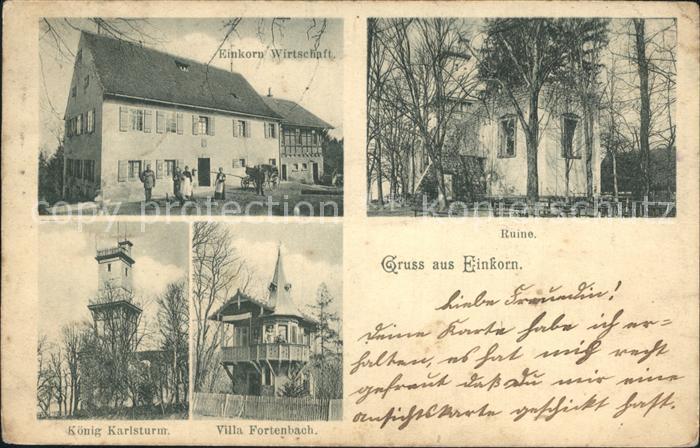 Einkorn Wirtschaft.
copy-protected
copy-protected
Ruine.
Gruss aus Einkorn.
Liebe Freundin!
Deine Karte habe ich er=
halten, es hat mich recht
gefreut daß Du mir eine
ansichtskarte geschickt hast.
König Karlsturm.
Villa Fortenbach.